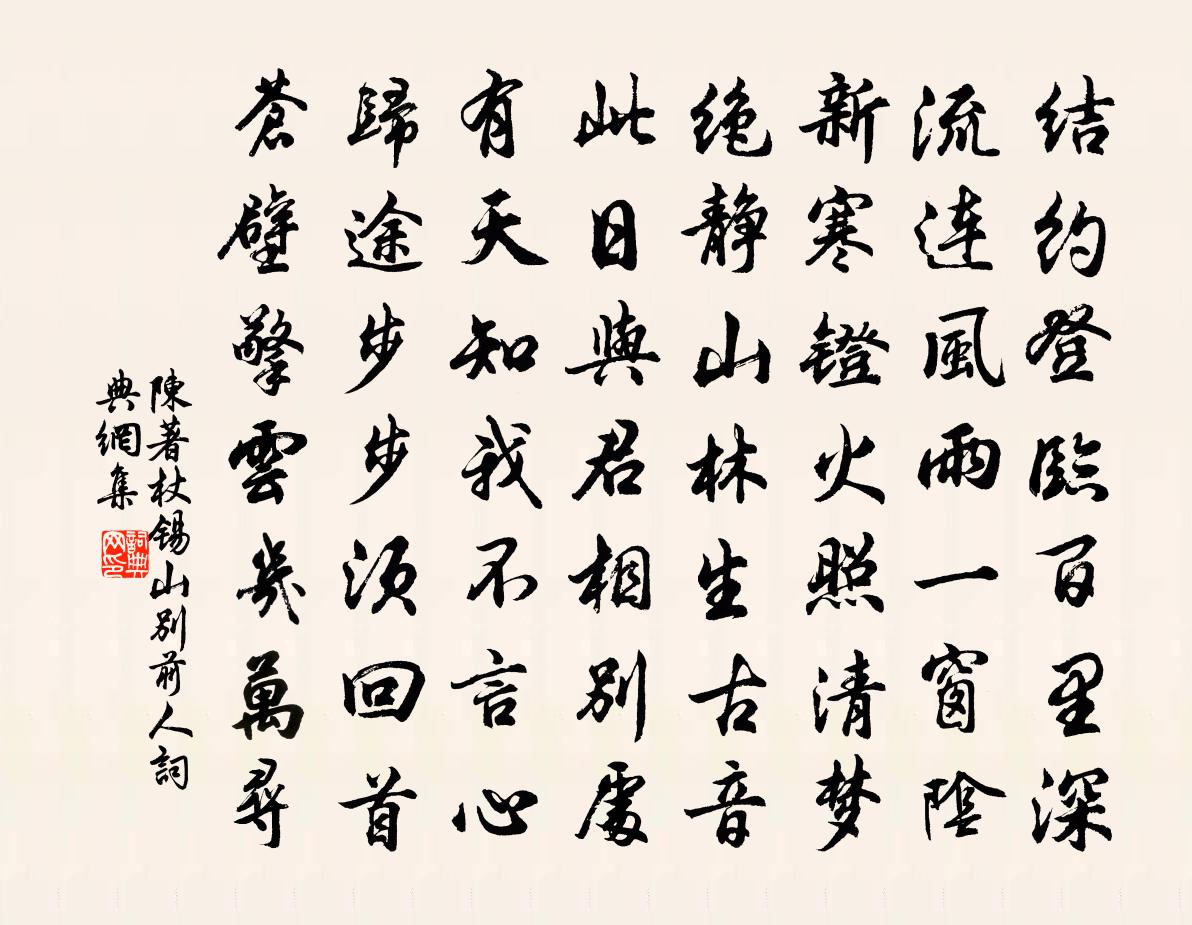 结约登臨百里深
流连風雨一窗陰
新寒鐙火照清梦
绝静山林生古音
此日與君相别處
有天知我不言心
歸途步步须回首
蒼壁擎雲幾萬尋
陳著杖锡山别前人詞
典網集
詞典
网印